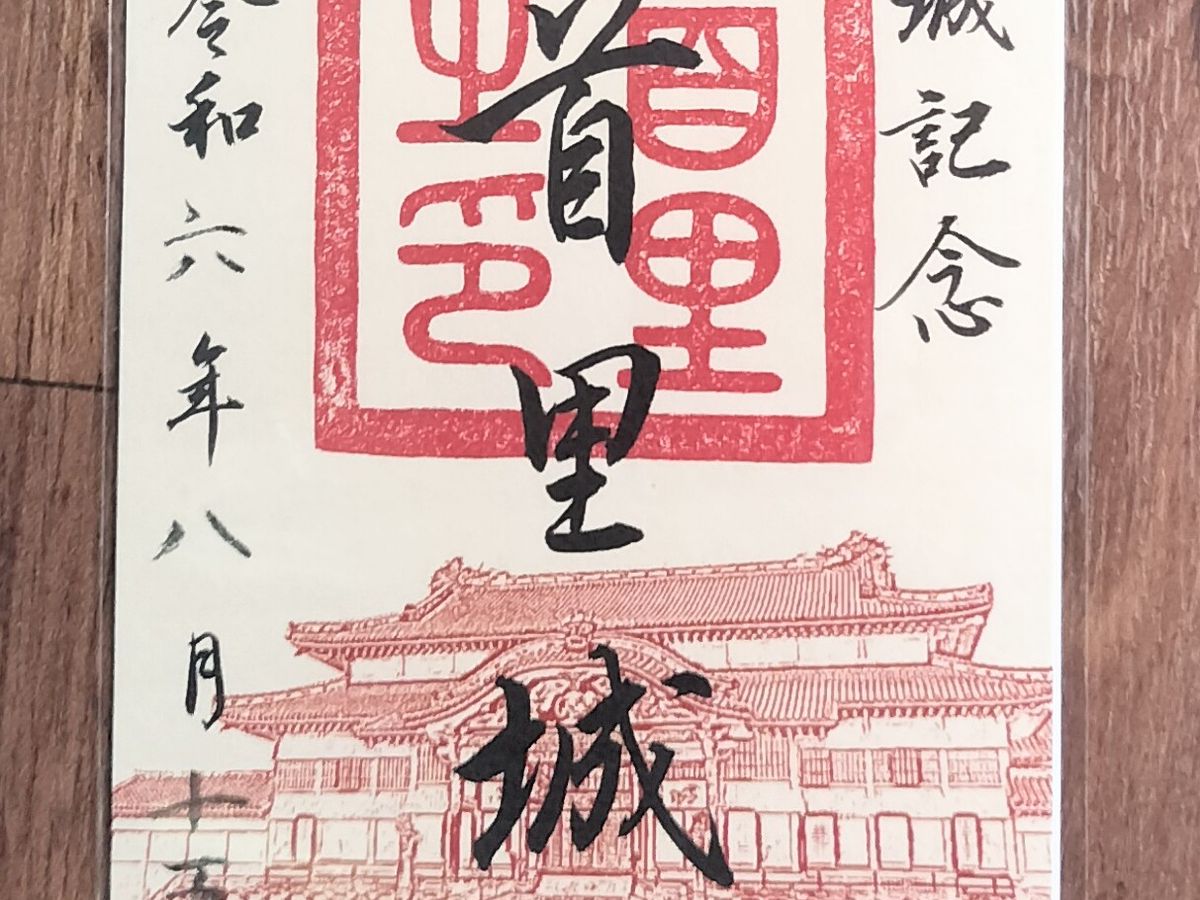 城記念
首里城
首里
之印
令和六年八月十五